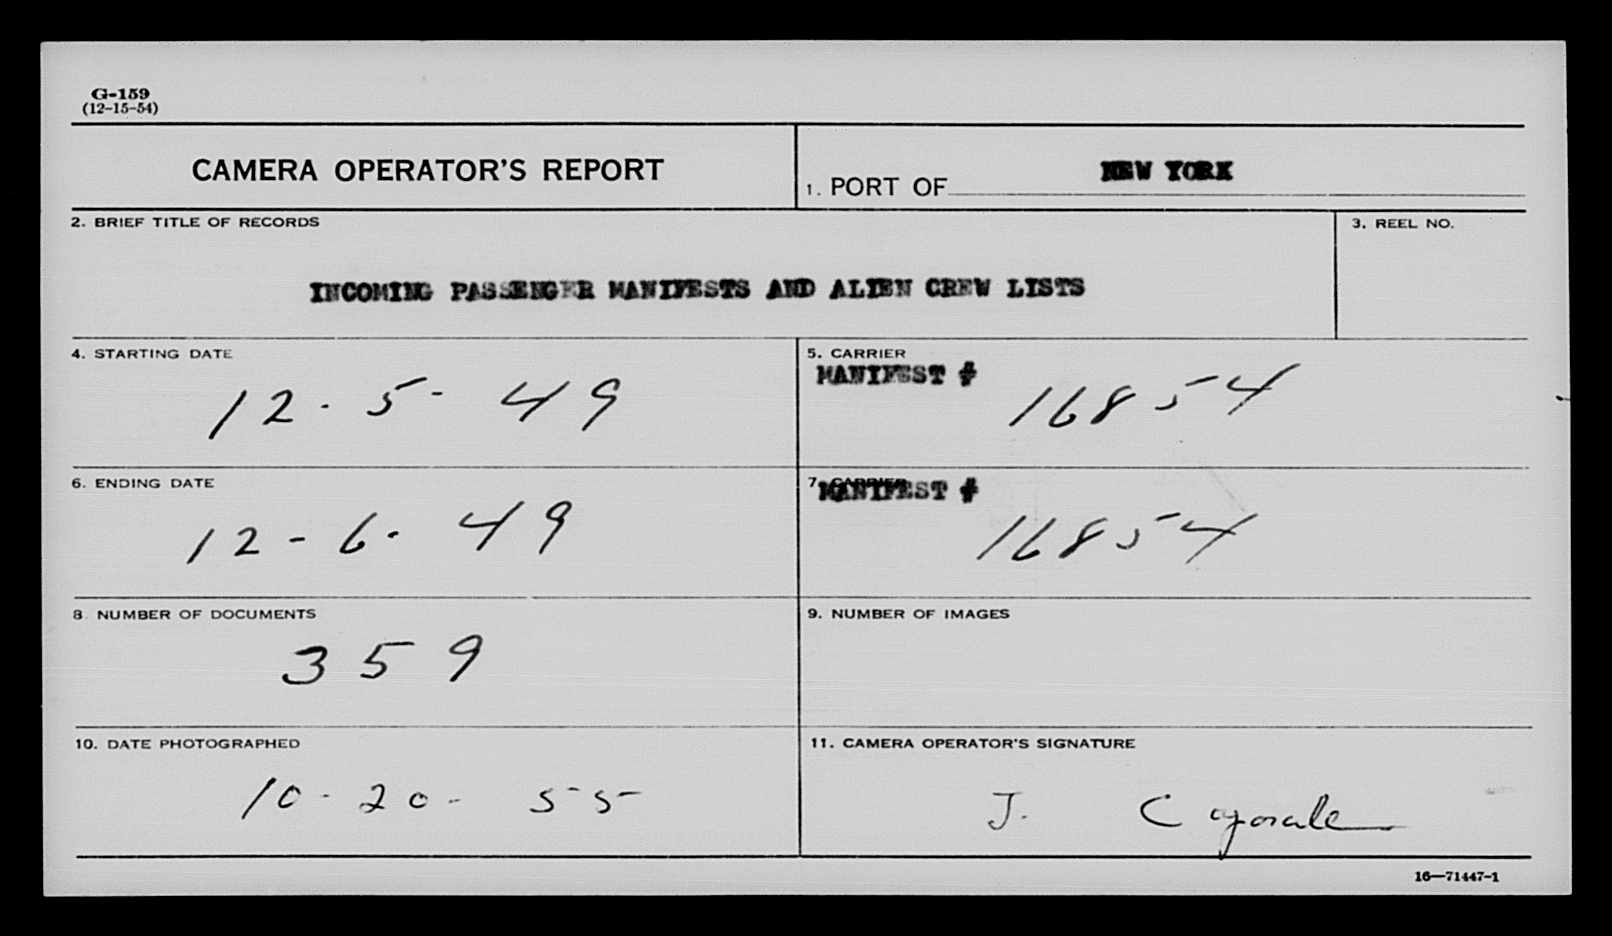 G-159
(12-15-54)
CAMERA OPERATOR'S REPORT
1. PORT OF NEW YORK
2. BRIEF TITLE OF RECORDS
3. REEL NO.
INCOMING PASSENGER MANIFESTS AND ALIEN CREW LISTS
4. STARTING DATE
12-5-49
5. CARRIER
MANIFEST #
16854
6. ENDING DATE
12-6-49
7. CARRIER
MANIFEST #
16854
8. NUMBER OF DOCUMENTS
359
9. NUMBER OF IMAGES
10. DATE PHOTOGRAPHED
10-20-55
11. CAMERA OPERATOR'S SIGNATURE
J.
16—71447-1